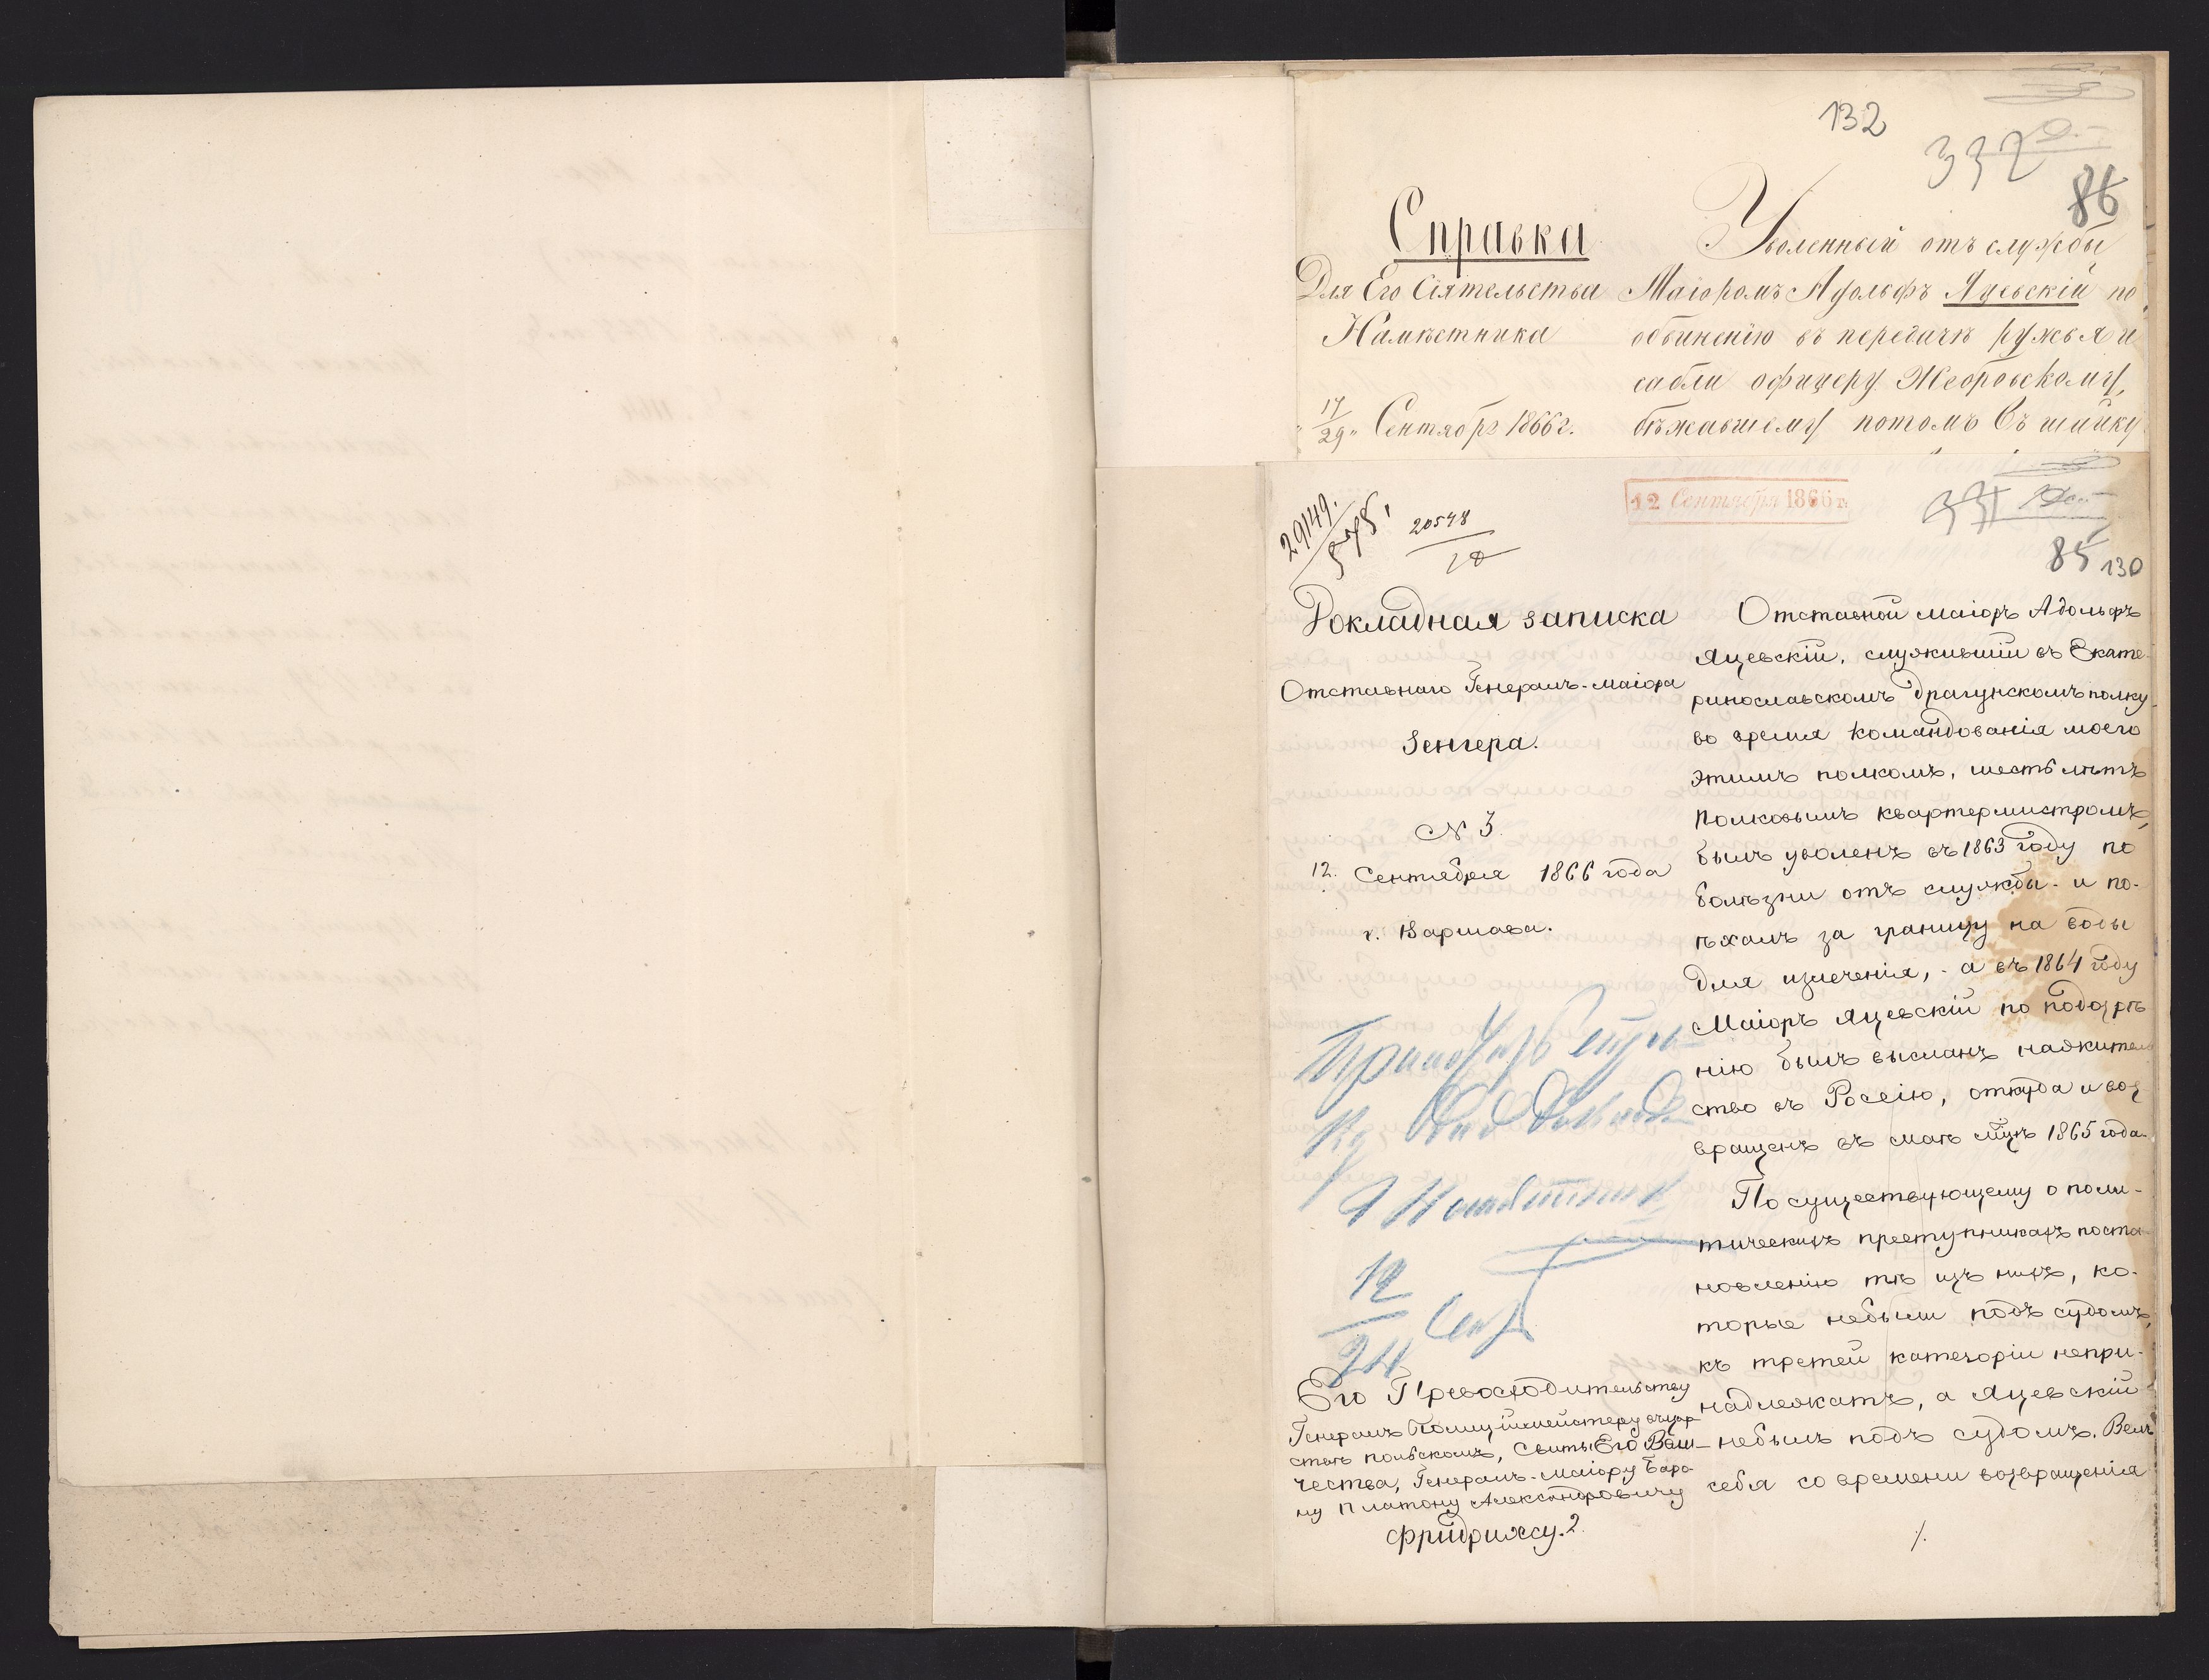 132
332
86
Справка
Для Его Сіятельства
Намѣстника
"17/29" Сентября 1866 г.
Уволенный отъ службы
Маіоромъ Адольфъ Яцевскій по
обвиненію въ передачѣ ружья и
сабли офицеру Жеоровскому,
бѣжавшему потомъ въ шайку
29149.
20548
12 Сентября 1866 г.
331
85
130
Докладная записка
Отставнаго Генералъ-маіора
Зенгера.
N 3.
12. Сентября 1866 года
г. Варшава.
Намѣстник
12/24 Сен
Его Превосходительству
Генералъ Полиціймейстеру въ цар-
ствѣ польскомъ, Свиты Его Вели-
чества, Генералъ-маіору Баро-
ну Платону Александровичу
Фридрихсу. 2.
Отставной маіоръ Адольфъ
Яцевскій, служившій въ Екате-
ринославскомъ драгунскомъ полку
во время командованія моего
этимъ полкомъ, шесть лѣтъ
полковымъ квартермистромъ,
былъ уволенъ въ 1863 году по
болѣзни отъ службы - и по-
ѣхалъ за границу на воды
для излеченія, - а въ 1864 году
Маіоръ Яцевскій по подозрѣ
нію былъ высланъ на жител
ство въ Россію, откуда и воз
вращенъ въ маѣ мцѣ 1865 года.
По существующему о поли-
тическихъ преступникахъ поста-
новленію тѣ изъ нихъ, ко-
торые небыли подъ судомъ,
къ третей категоріи непри-
надлежатъ, а Яцевскій
небылъ подъ судомъ. Велъ
себя со времени возвращенія
./.